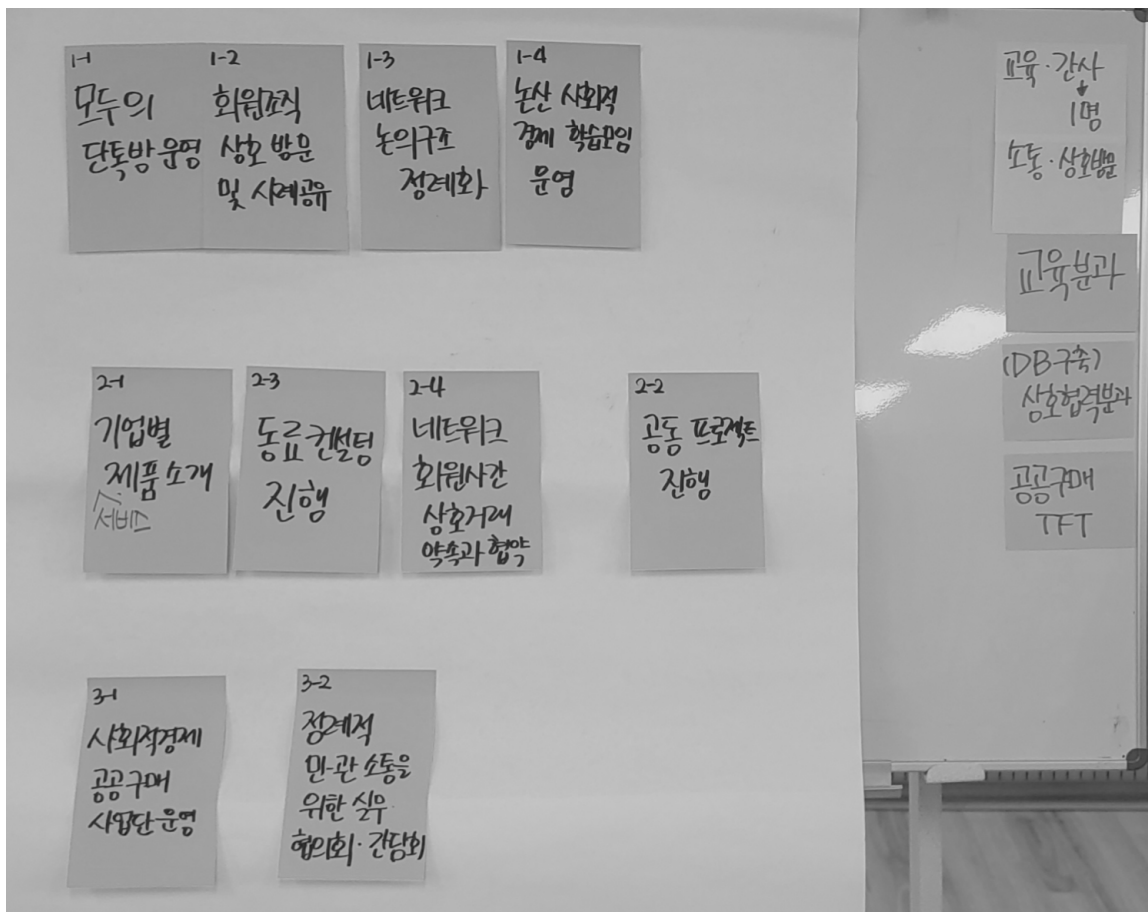 1-1
모두의
단톡방 운영
1-2
회원조직
상호 방문
및 사례공유
1-3
네트워크
논의구조
정례화
1-4
논산 사회적
경제 학습모임
운영
2-1
기업별
제품 소개
서비스
2-3
동료 컨설팅
진행
2-4
네트워크
회원사간
상호거래
약속과 협약
2-2
공동 프로젝트
진행
3-1
사회적경제
공공구매
사업단 운영
3-2
정례적
민-관 소통을
위한 실무
협의회·간담회
교육·간사
1명
소통·상호방문
교육분과
(DB구축)
상호협력분과
공공구매
TFT